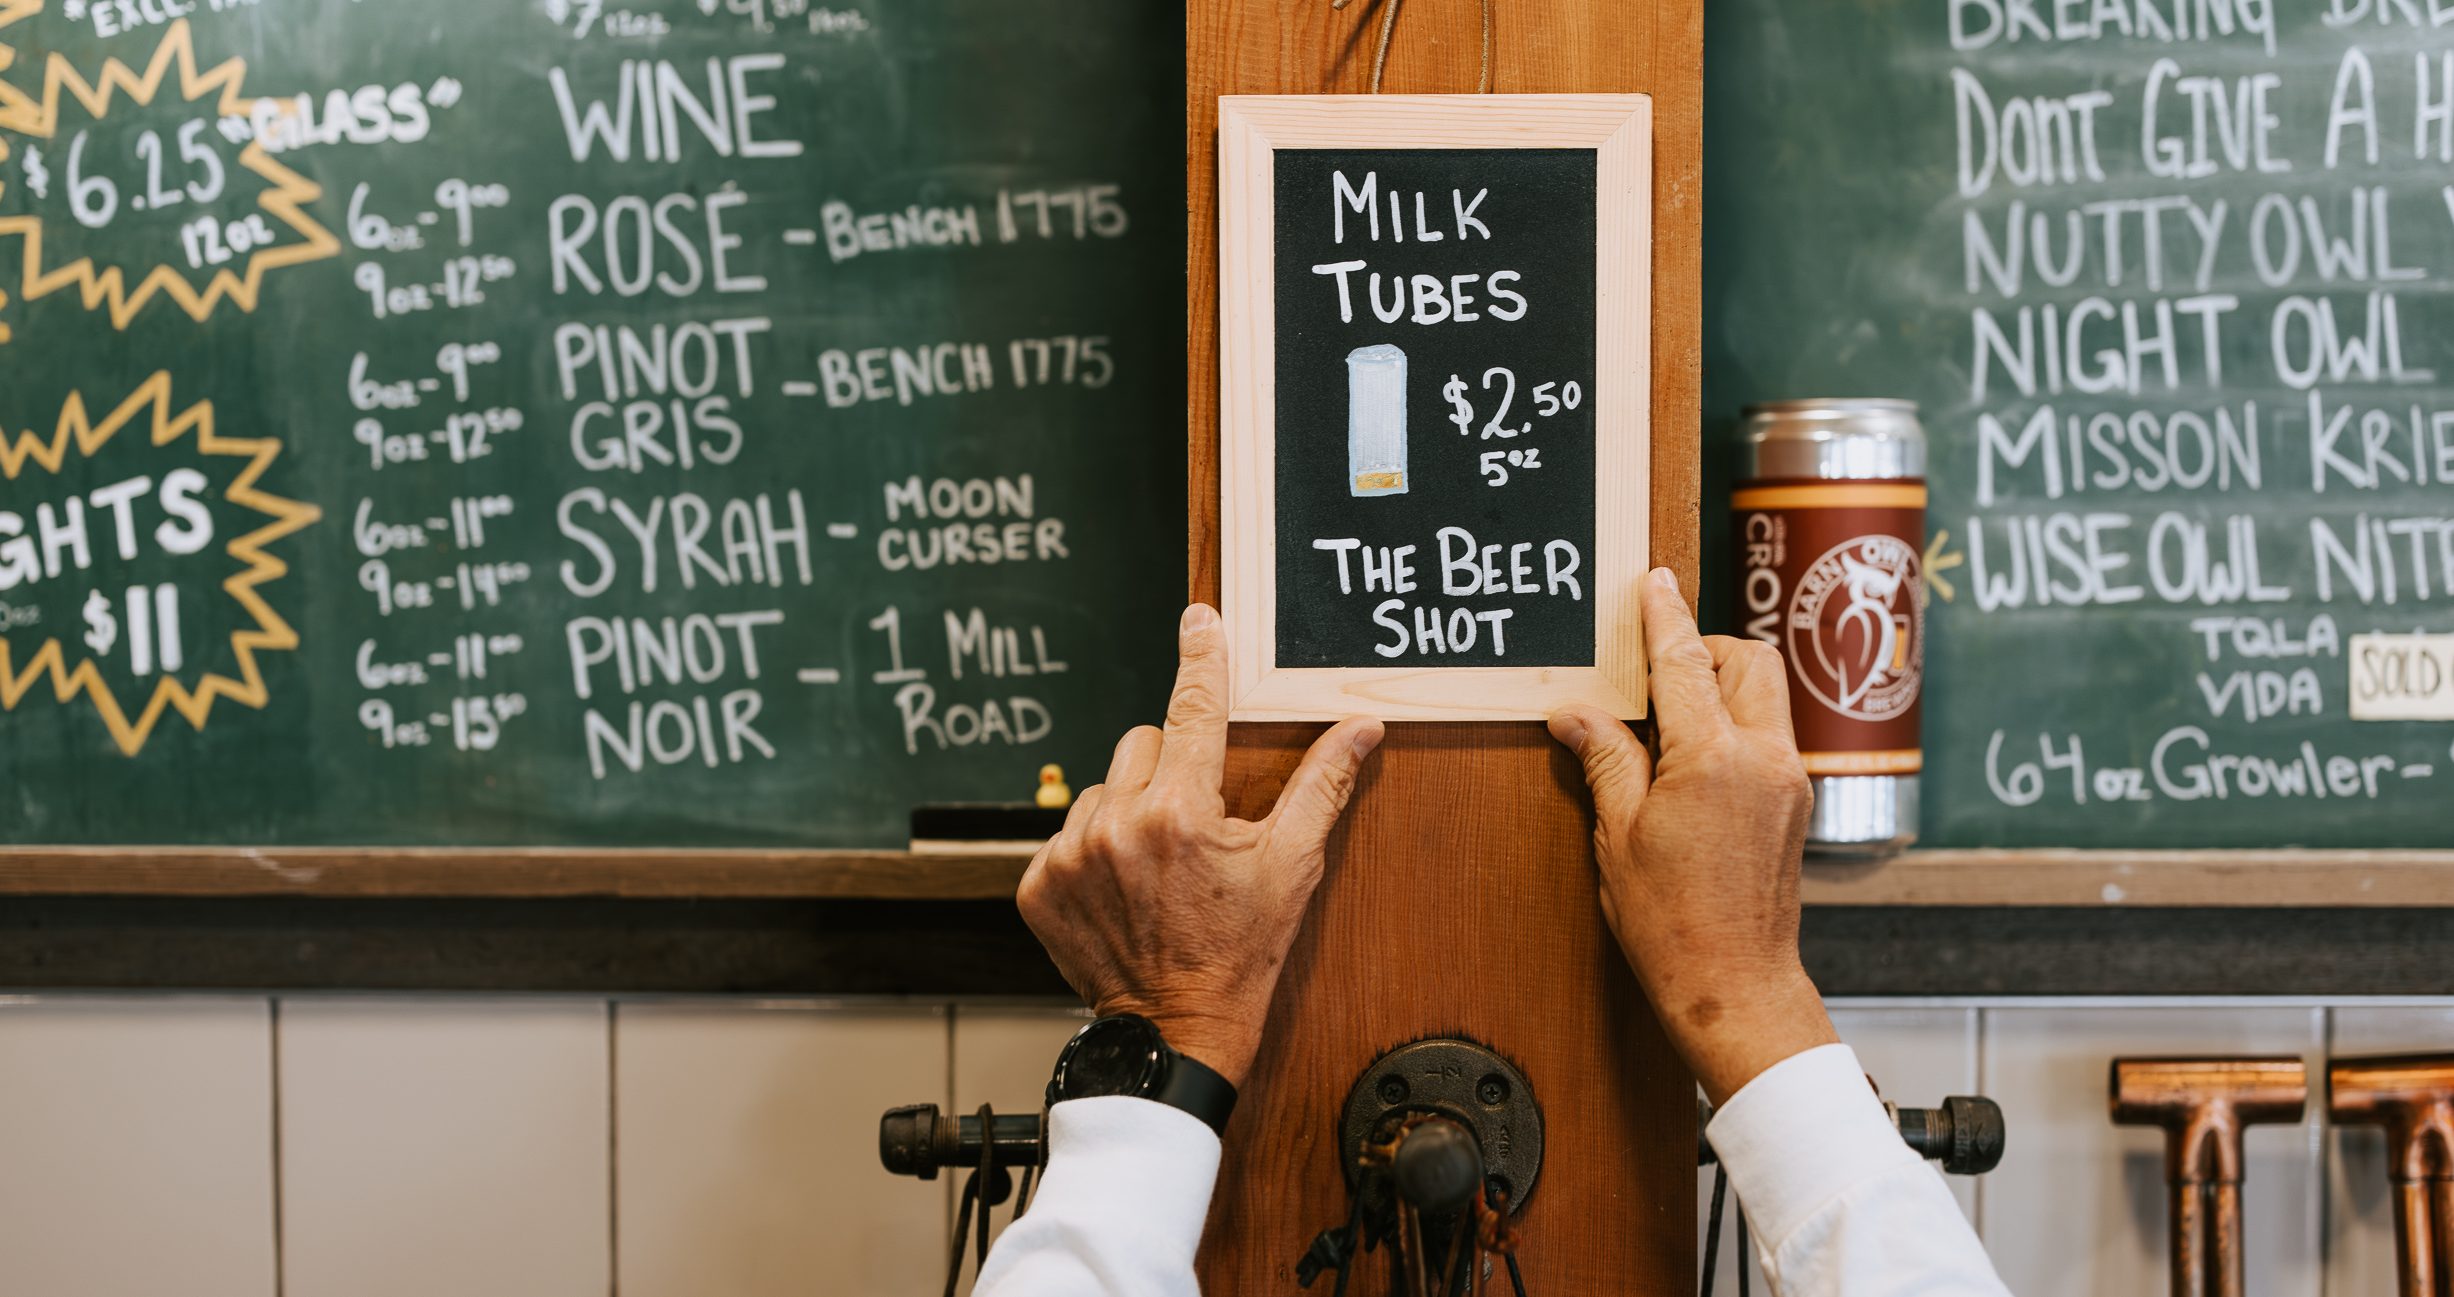 *EXCL. TAX
$6.25 "GLASS"
12oz
GHTS
$11
$7 12oz $9.50 16oz
WINE
6oz-9.00 ROSÉ - BENCH 1775
9oz-12.50
6oz-9.00 PINOT - BENCH 1775
9oz-12.50 GRIS
6oz-11.00 SYRAH - MOON
9oz-14.00 CURSER
6oz-11.00 PINOT - 1 MILL
9oz-15.50 NOIR ROAD
MILK
TUBES
$2.50
5oz
THE BEER
SHOT
CROW
BARN OWL
BREWING
BREAKING
DONT GIVE A H
NUTTY OWL
NIGHT OWL
MISSON KRIE
WISE OWL NIT
TQLA
VIDA
SOLD
64oz Growler-